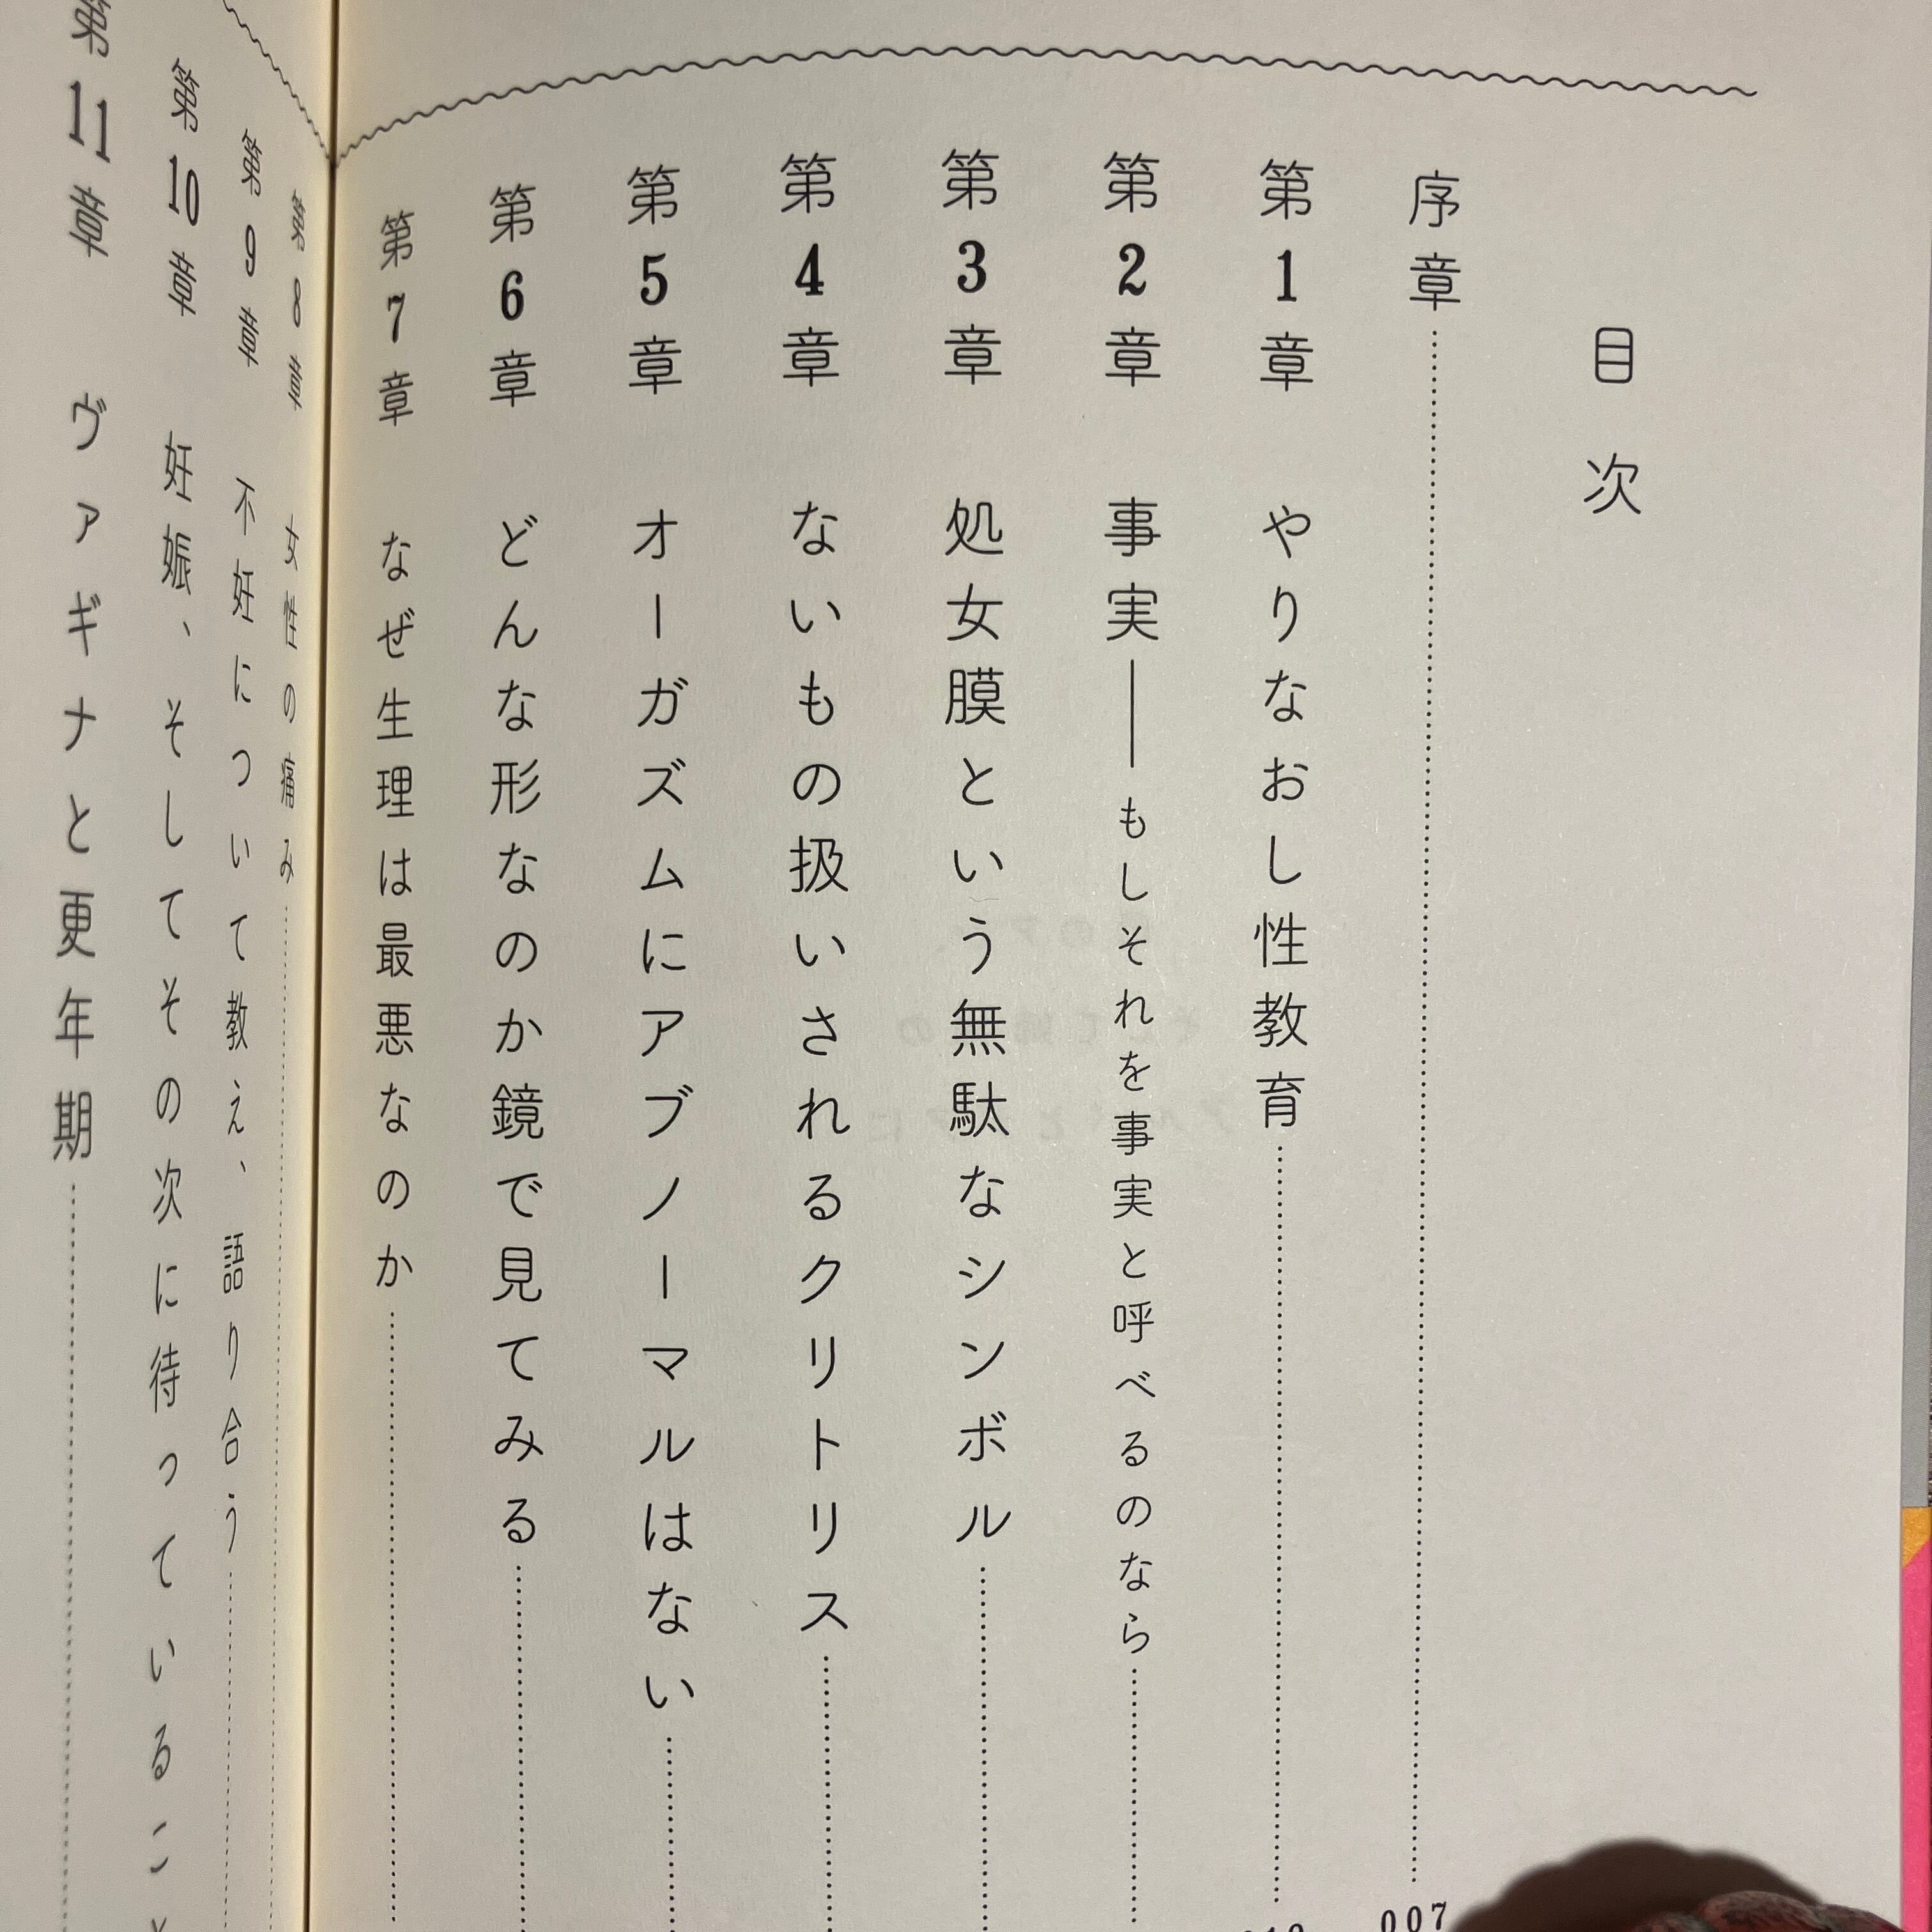 目次
序章 007
第1章 やりなおし性教育
第2章 事実――もしそれを事実と呼べるのなら
第3章 処女膜という無駄なシンボル
第4章 ないもの扱いされるクリトリス
第5章 オーガズムにアブノーマルはない
第6章 どんな形なのか鏡で見てみる
第7章 なぜ生理は最悪なのか
第8章 女性の痛み
第9章 不妊について教え、語り合う
第10章 妊娠、そしてその次に待っているこ
第11章 ヴァギナと更年期